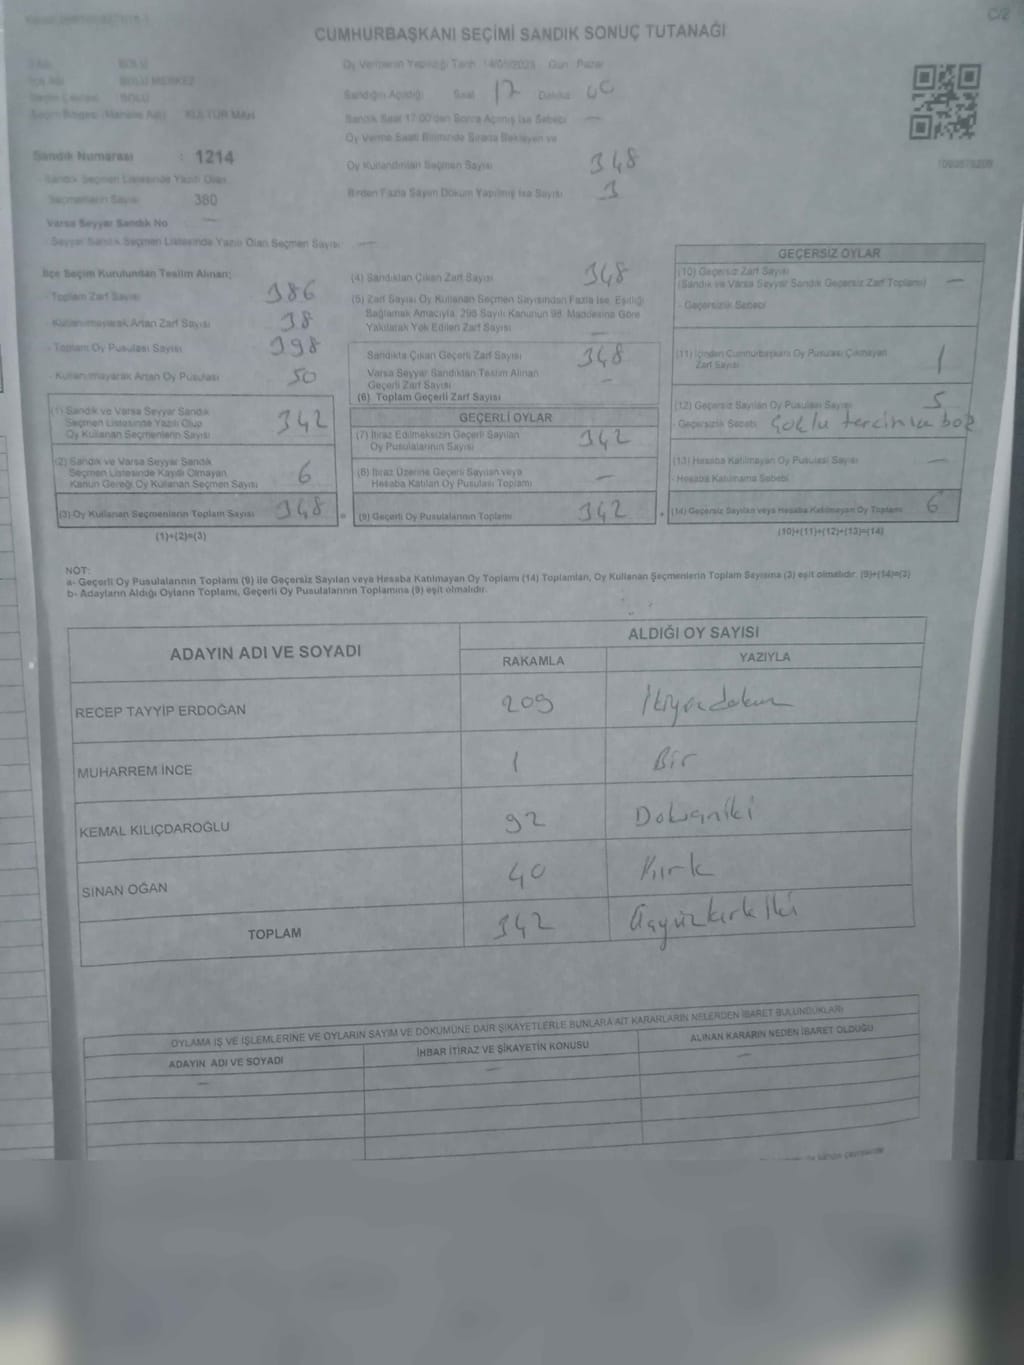 C/2
CUMHURBAŞKANI SEÇİMİ SANDIK SONUÇ TUTANAĞI
BOLU
BOLU MERKEZ
BOLU
KÜLTÜR MAH.
Oy Vermenin Yapıldığı Tarih 14/05/2023 Gün Pazar
Sandığın Açıldığı Saat 17 Dakika 00
Sandık Saat 17:00'den Sonra Açılmış İse Sebebi —
Oy Verme Saati Bitiminde Sırada Bekleyen ve
Oy Kullandırılan Seçmen Sayısı 348
Birden Fazla Sayım Döküm Yapılmış İse Sayısı 1
Sandık Numarası : 1214
- Sandık Seçmen Listesinde Yazılı Olan
Seçmenlerin Sayısı 380
Varsa Seyyar Sandık No —
- Seyyar Sandık Seçmen Listesinde Yazılı Olan Seçmen Sayısı —
İlçe Seçim Kurulundan Teslim Alınan;
- Toplam Zarf Sayısı 386
- Kullanılmayarak Artan Zarf Sayısı 38
- Toplam Oy Pusulası Sayısı 398
- Kullanılmayarak Artan Oy Pusulası 50
(1) Sandık ve Varsa Seyyar Sandık
Seçmen Listesinde Yazılı Olup
Oy Kullanan Seçmenlerin Sayısı 342
(2) Sandık ve Varsa Seyyar Sandık
Seçmen Listesinde Kayıtlı Olmayan
Kanun Gereği Oy Kullanan Seçmen Sayısı 6
(3) Oy Kullanan Seçmenlerin Toplam Sayısı 348
(1)+(2)=(3)
(4) Sandıktan Çıkan Zarf Sayısı 348
(5) Zarf Sayısı Oy Kullanan Seçmen Sayısından Fazla İse, Eşitliği
Sağlamak Amacıyla, 298 Sayılı Kanunun 98. Maddesine Göre
Yakılarak Yok Edilen Zarf Sayısı —
Sandıkta Çıkan Geçerli Zarf Sayısı 348
Varsa Seyyar Sandıktan Teslim Alınan
Geçerli Zarf Sayısı —
(6) Toplam Geçerli Zarf Sayısı
GEÇERLİ OYLAR
(7) İtiraz Edilmeksizin Geçerli Sayılan
Oy Pusulalarının Sayısı 342
(8) İtiraz Üzerine Geçerli Sayılan veya
Hesaba Katılan Oy Pusulası Toplamı —
(9) Geçerli Oy Pusulalarının Toplamı 342
GEÇERSİZ OYLAR
(10) Geçersiz Zarf Sayısı
(Sandık ve Varsa Seyyar Sandık Geçersiz Zarf Toplamı) —
- Geçersizlik Sebebi
(11) İçinden Cumhurbaşkanı Oy Pusulası Çıkmayan
Zarf Sayısı 1
(12) Geçersiz Sayılan Oy Pusulası Sayısı 5
- Geçersizlik Sebebi Çoklu tercih ve boş
(13) Hesaba Katılmayan Oy Pusulası Sayısı —
- Hesaba Katılmama Sebebi
(14) Geçersiz Sayılan veya Hesaba Katılmayan Oy Toplamı 6
(10)+(11)+(12)+(13)=(14)
NOT:
a- Geçerli Oy Pusulalarının Toplamı (9) ile Geçersiz Sayılan veya Hesaba Katılmayan Oy Toplamı (14) Toplamları, Oy Kullanan Seçmenlerin Toplam Sayısına (3) eşit olmalıdır. (9)+(14)=(3)
b- Adayların Aldığı Oyların Toplamı, Geçerli Oy Pusulalarının Toplamına (9) eşit olmalıdır.
ADAYIN ADI VE SOYADI
ALDIĞI OY SAYISI
RAKAMLA YAZIYLA
RECEP TAYYİP ERDOĞAN 209 İkiyüzdokuz
MUHARREM İNCE 1 Bir
KEMAL KILIÇDAROĞLU 92 Doksaniki
SİNAN OĞAN 40 Kırk
TOPLAM 342 Üçyüzkırkiki
OYLAMA İŞ VE İŞLEMLERİNE VE OYLARIN SAYIM VE DÖKÜMÜNE DAİR ŞİKAYETLERLE BUNLARA AİT KARARLARIN NELERDEN İBARET BULUNDUKLARI
ADAYIN ADI VE SOYADI İHBAR İTİRAZ VE ŞİKAYETİN KONUSU ALINAN KARARIN NEDEN İBARET OLDUĞU
— — —